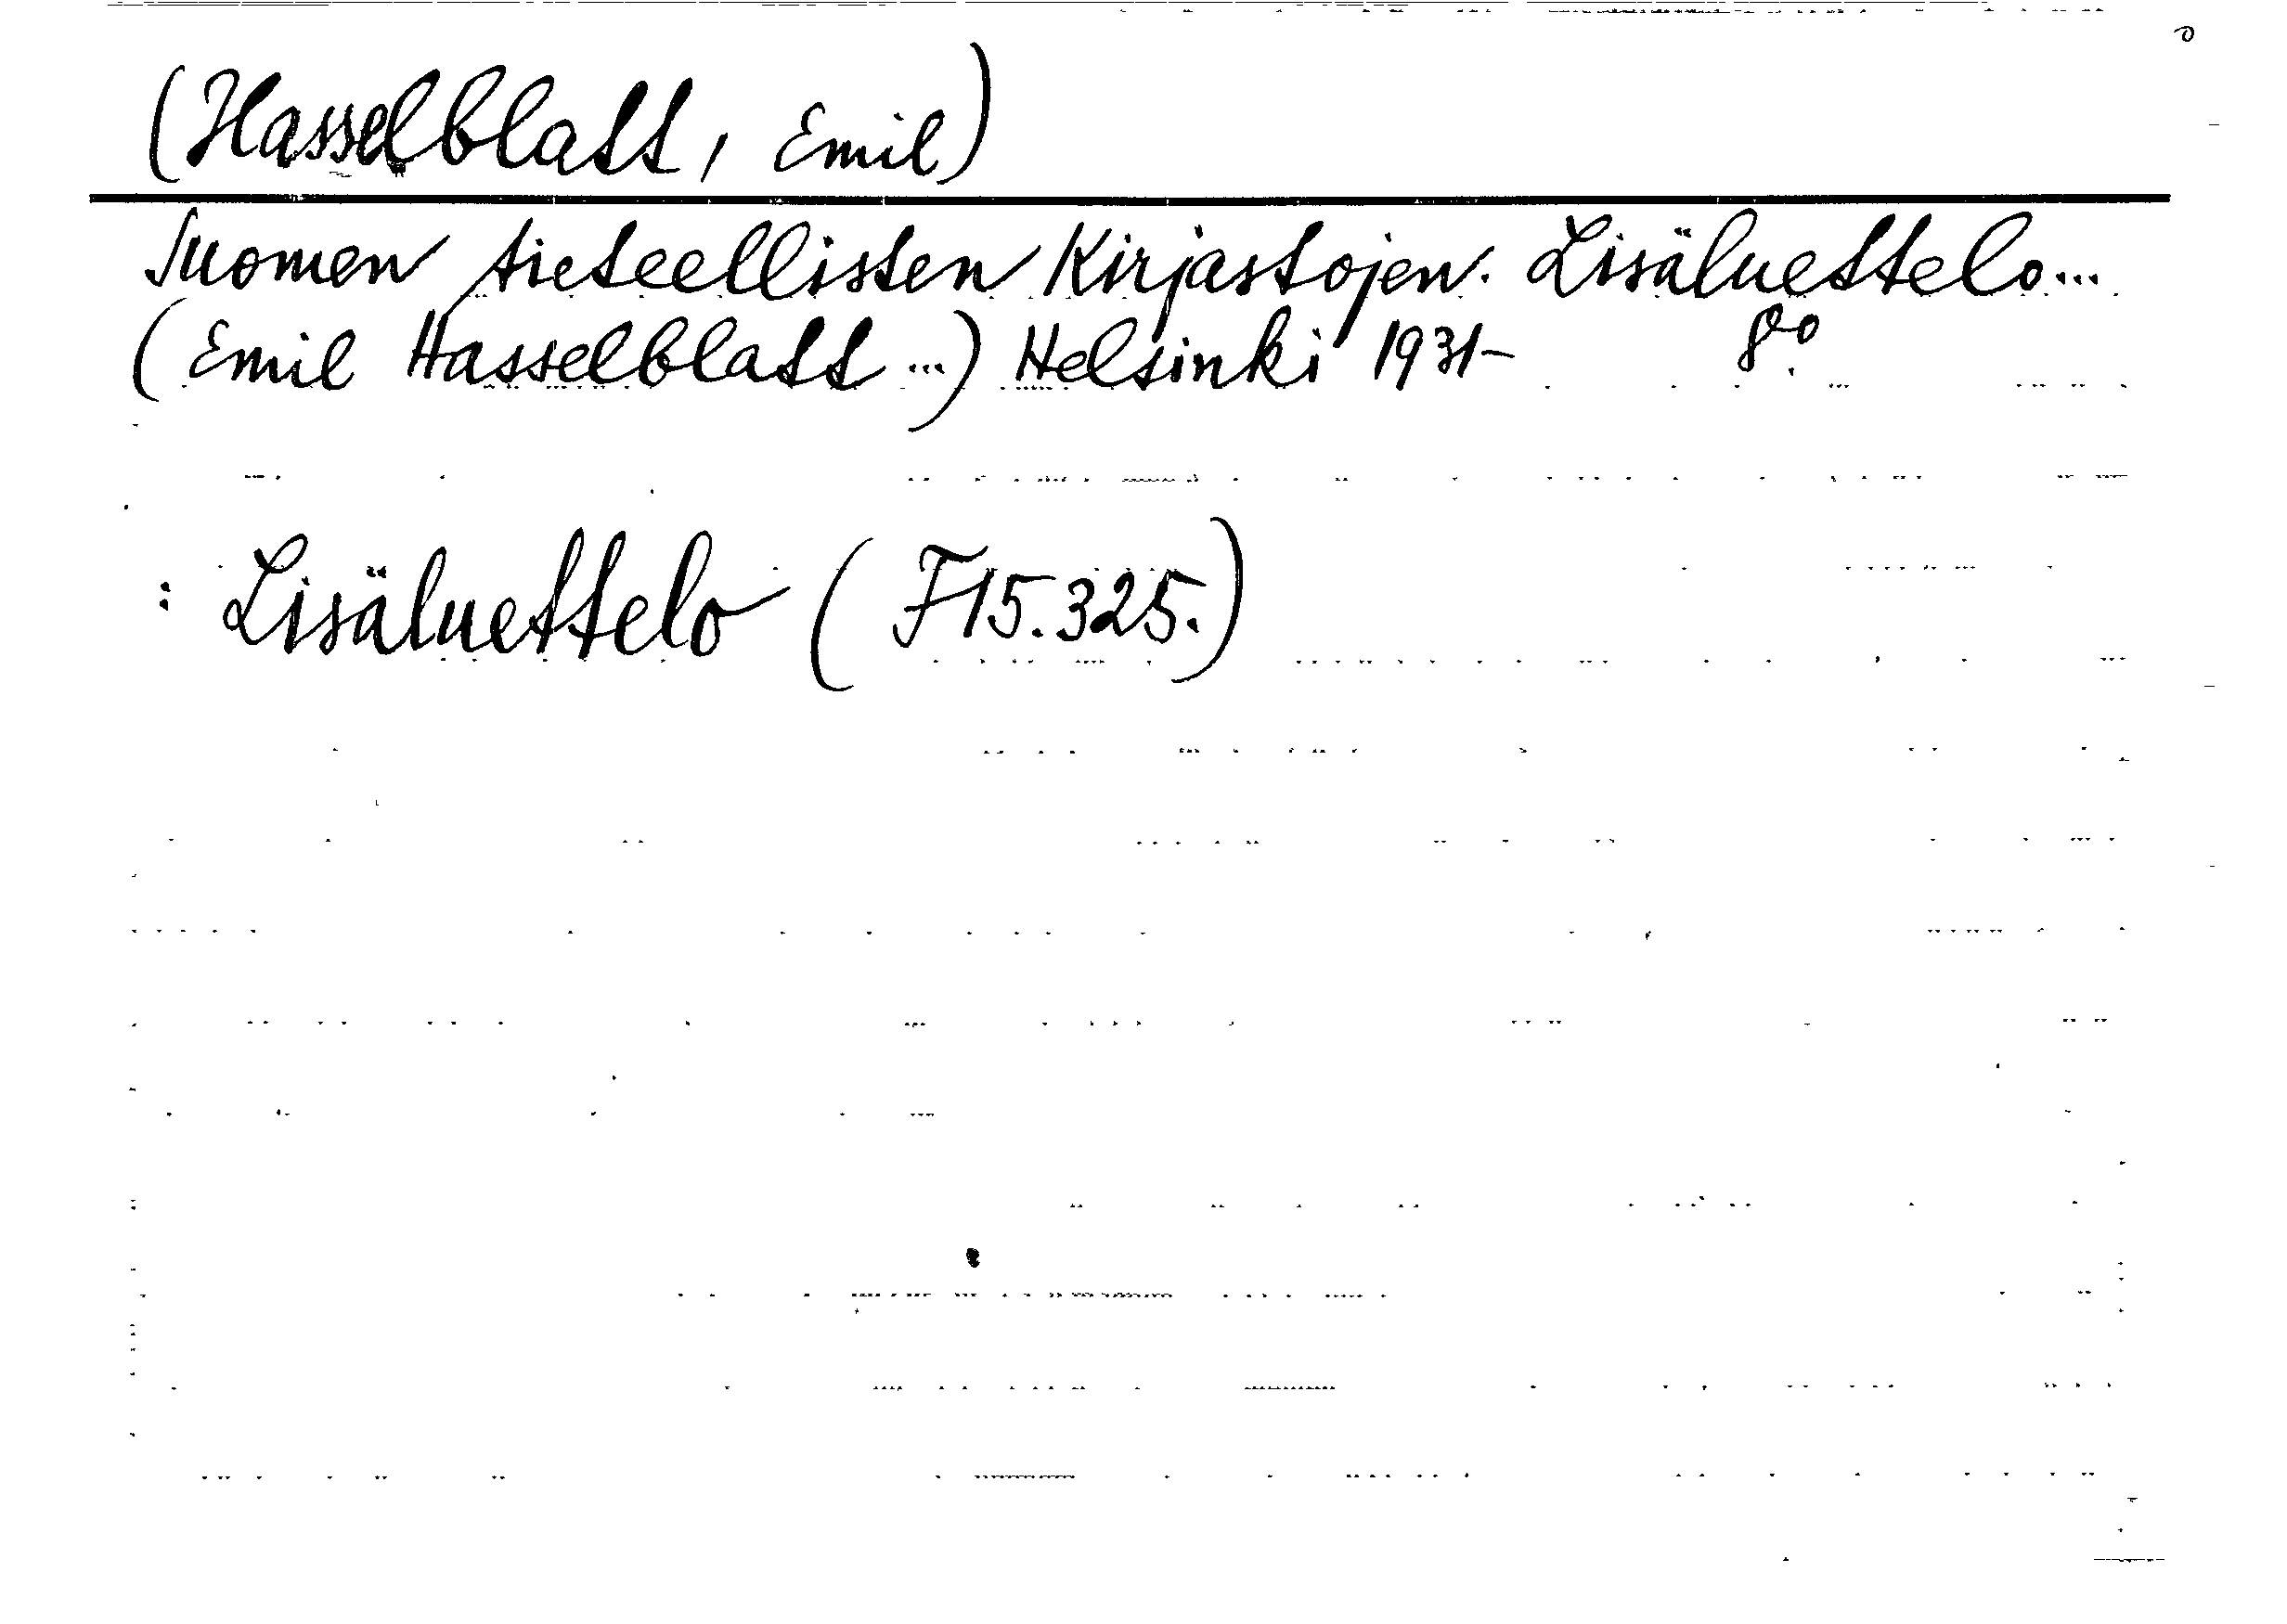 (Hasselblatt, Emil)
Suomen tieteellisten Kirjastojen. Lisäluettelo...
(Emil Hasselblatt ...) Helsinki 1931- 8º
: Lisäluettelo (F15.325.)